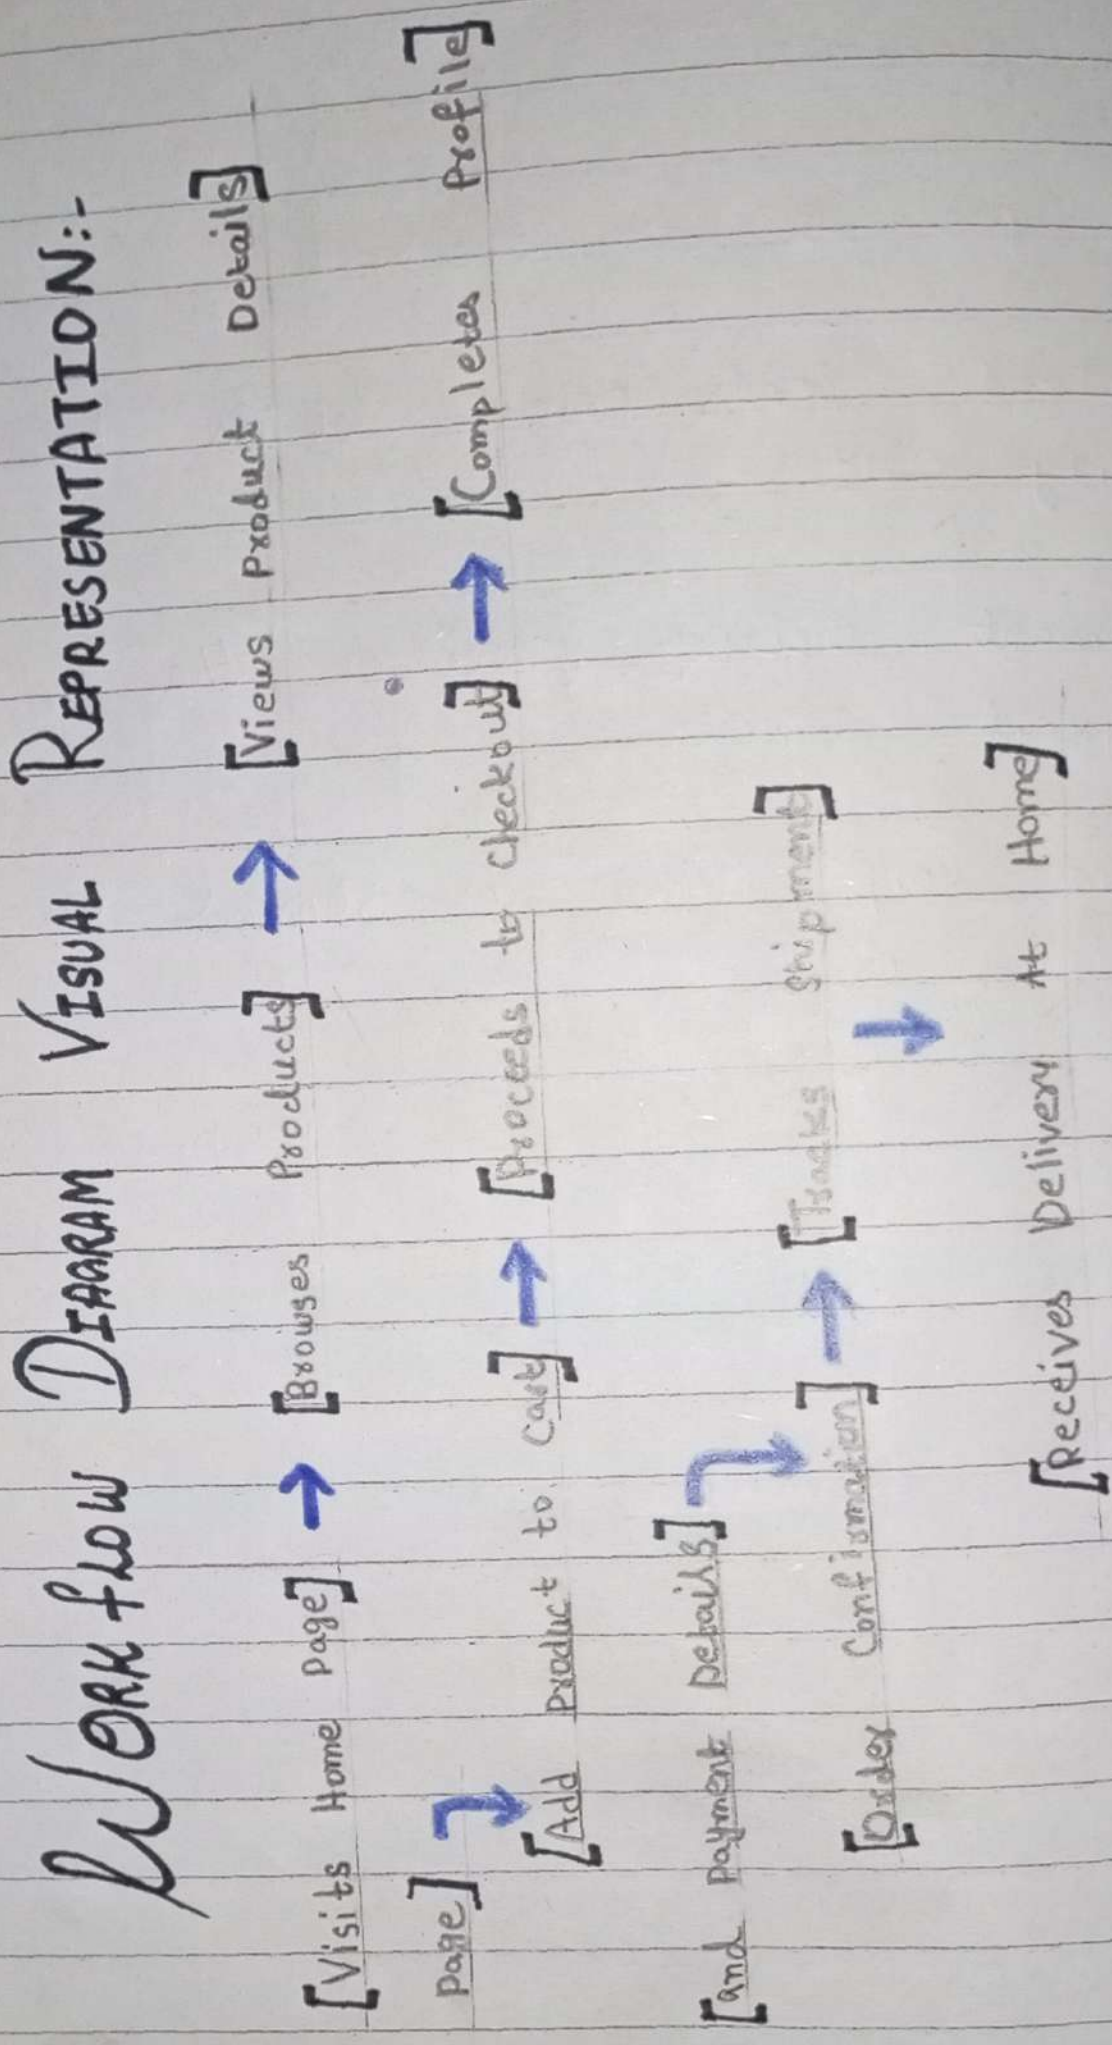 WORKFLOW DIAGRAM VISUAL REPRESENTATION:-
[Visits Home page] → [Browses Products] → [Views Product Details]
page]
[Add product to Cart] → [Proceeds to checkout] → [Completes Profile]
[and payment Details]
[Order Confirmation] → [Tracks Shipment]
[Receives Delivery At Home]